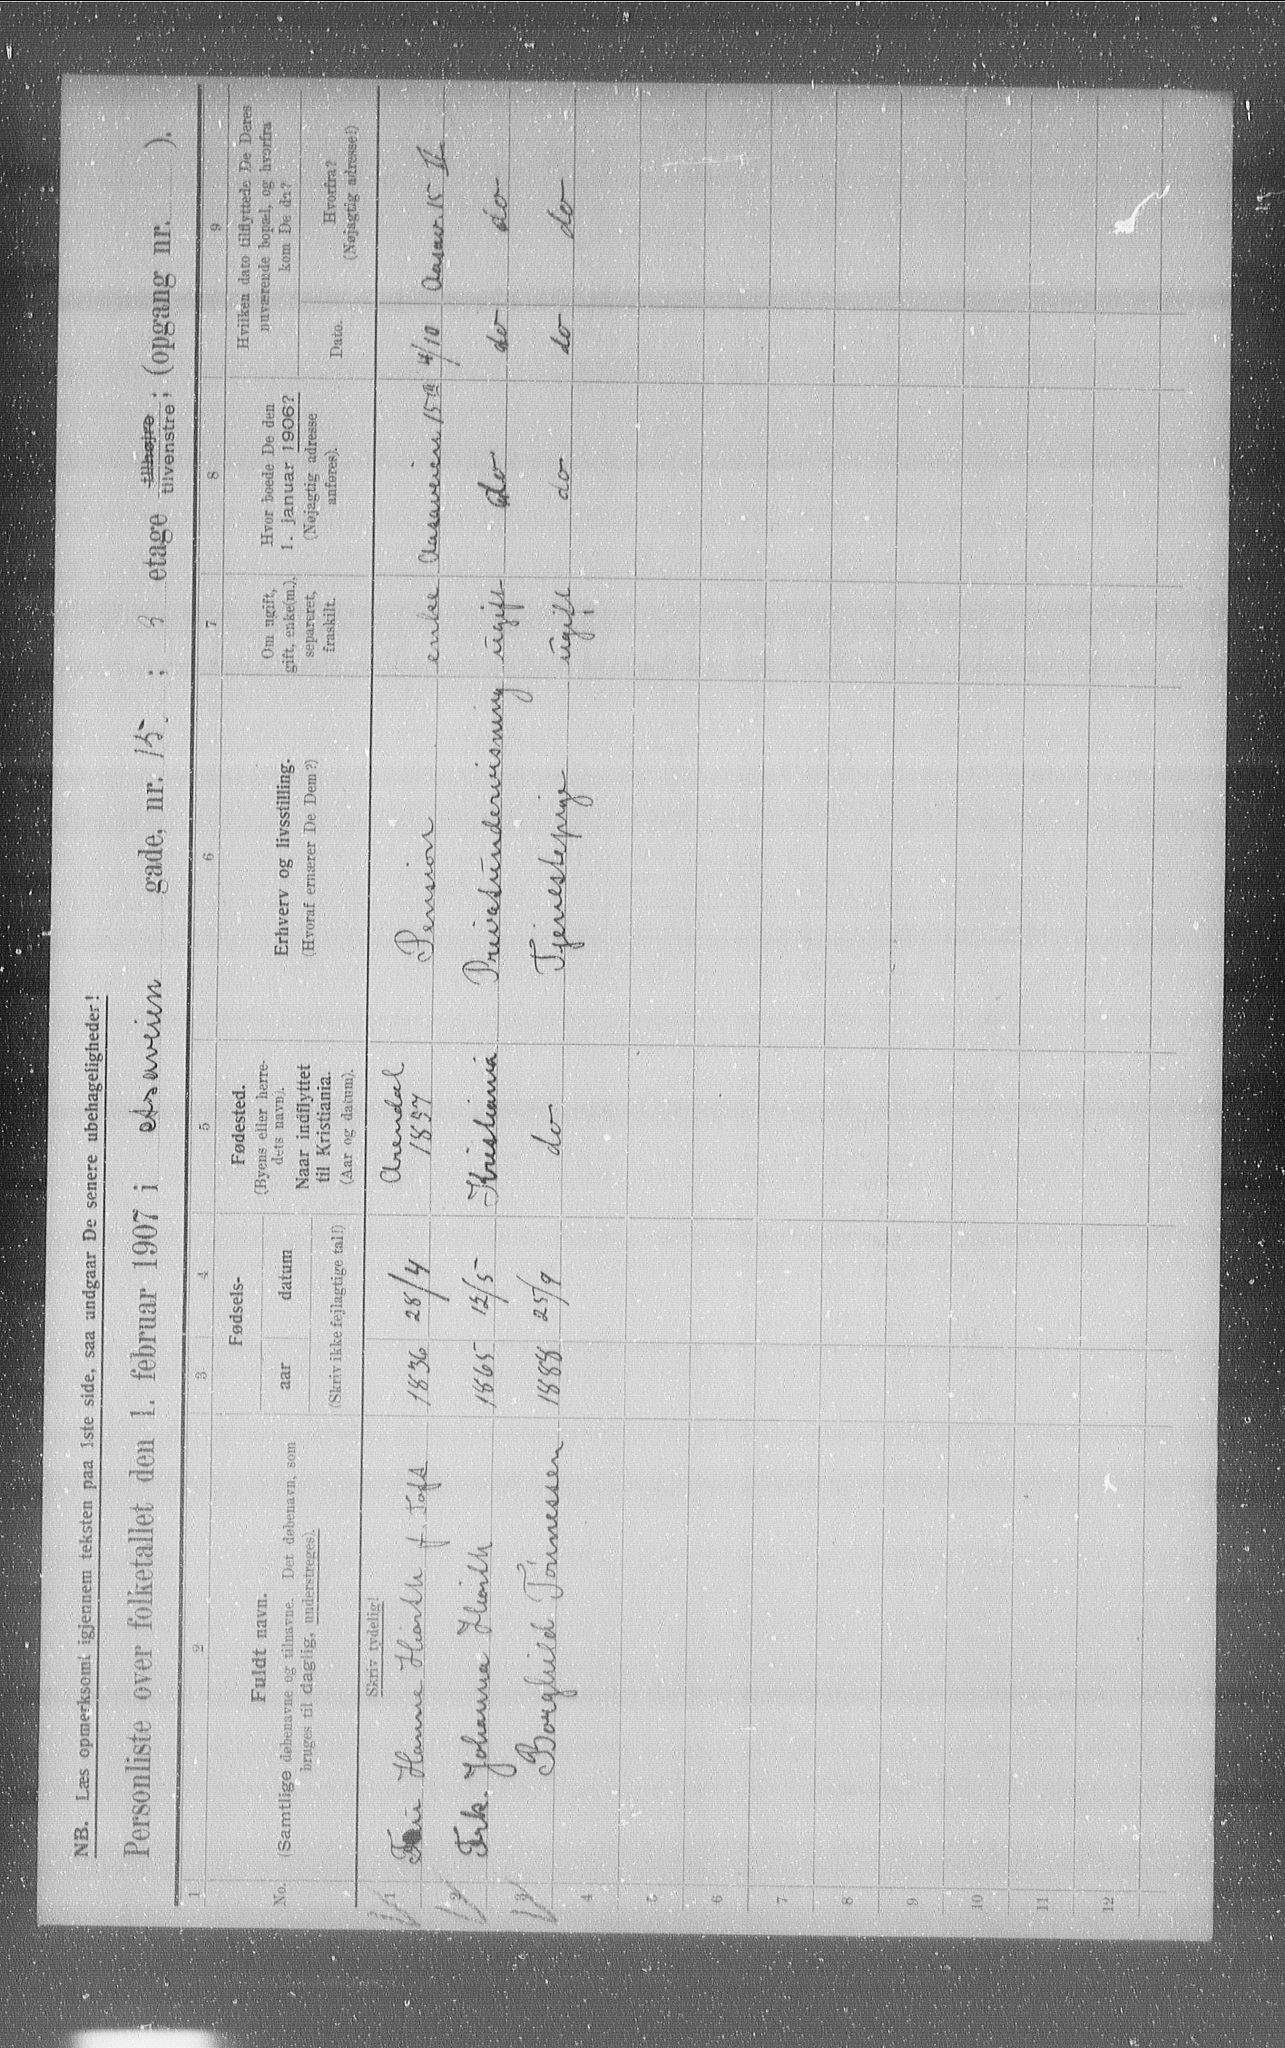 NB. Læs opmerksomt igjennem teksten paa 1ste side, saa undgaar De senere ubehageligheder!
Personliste over folketallet den 1. februar 1907 i Asaveien gade, nr. 15 ; 3 etage tilhøjre tilvenstre; (opgang nr. ).
1 2 3 4 5 6 7 8 9
No.
Fuldt navn.
(Samtlige døbenavne og tilnavne. Det døbenavn, som
bruges til daglig, understreges).
Fødsels-
aar datum
(Skriv ikke fejlagtige tal!)
Fødested.
(Byens eller herre-
dets navn).
Naar indflyttet
til Kristiania.
(Aar og datum).
Erhverv og livsstilling.
(Hvoraf ernærer De Dem?)
Om ugift,
gift, enke(m.),
separeret,
fraskilt.
Hvor boede De den
1. januar 1906?
(Nøjagtig adresse
anføres).
Hvilken dato tilflyttede De Deres
nuværende bopæl, og hvorfra
kom De da?
Dato.
Hvorfra?
(Nøjagtig adresse!)
Skriv tydelig!
1 Fru Hanne Hiorth f. Toft 1836 28/4 Arendal 1857 Pension enke Aasaveien 15 III 4/10 Aasav. 15 II
2 Frk. Johanna Hiorth 1865 12/5 Kristiania Privatundervisning ugift do do do
3 Borghild Tönnessen 1888 25/9 do Tjenestepige ugift do do do
4
5
6
7
8
9
10
11
12